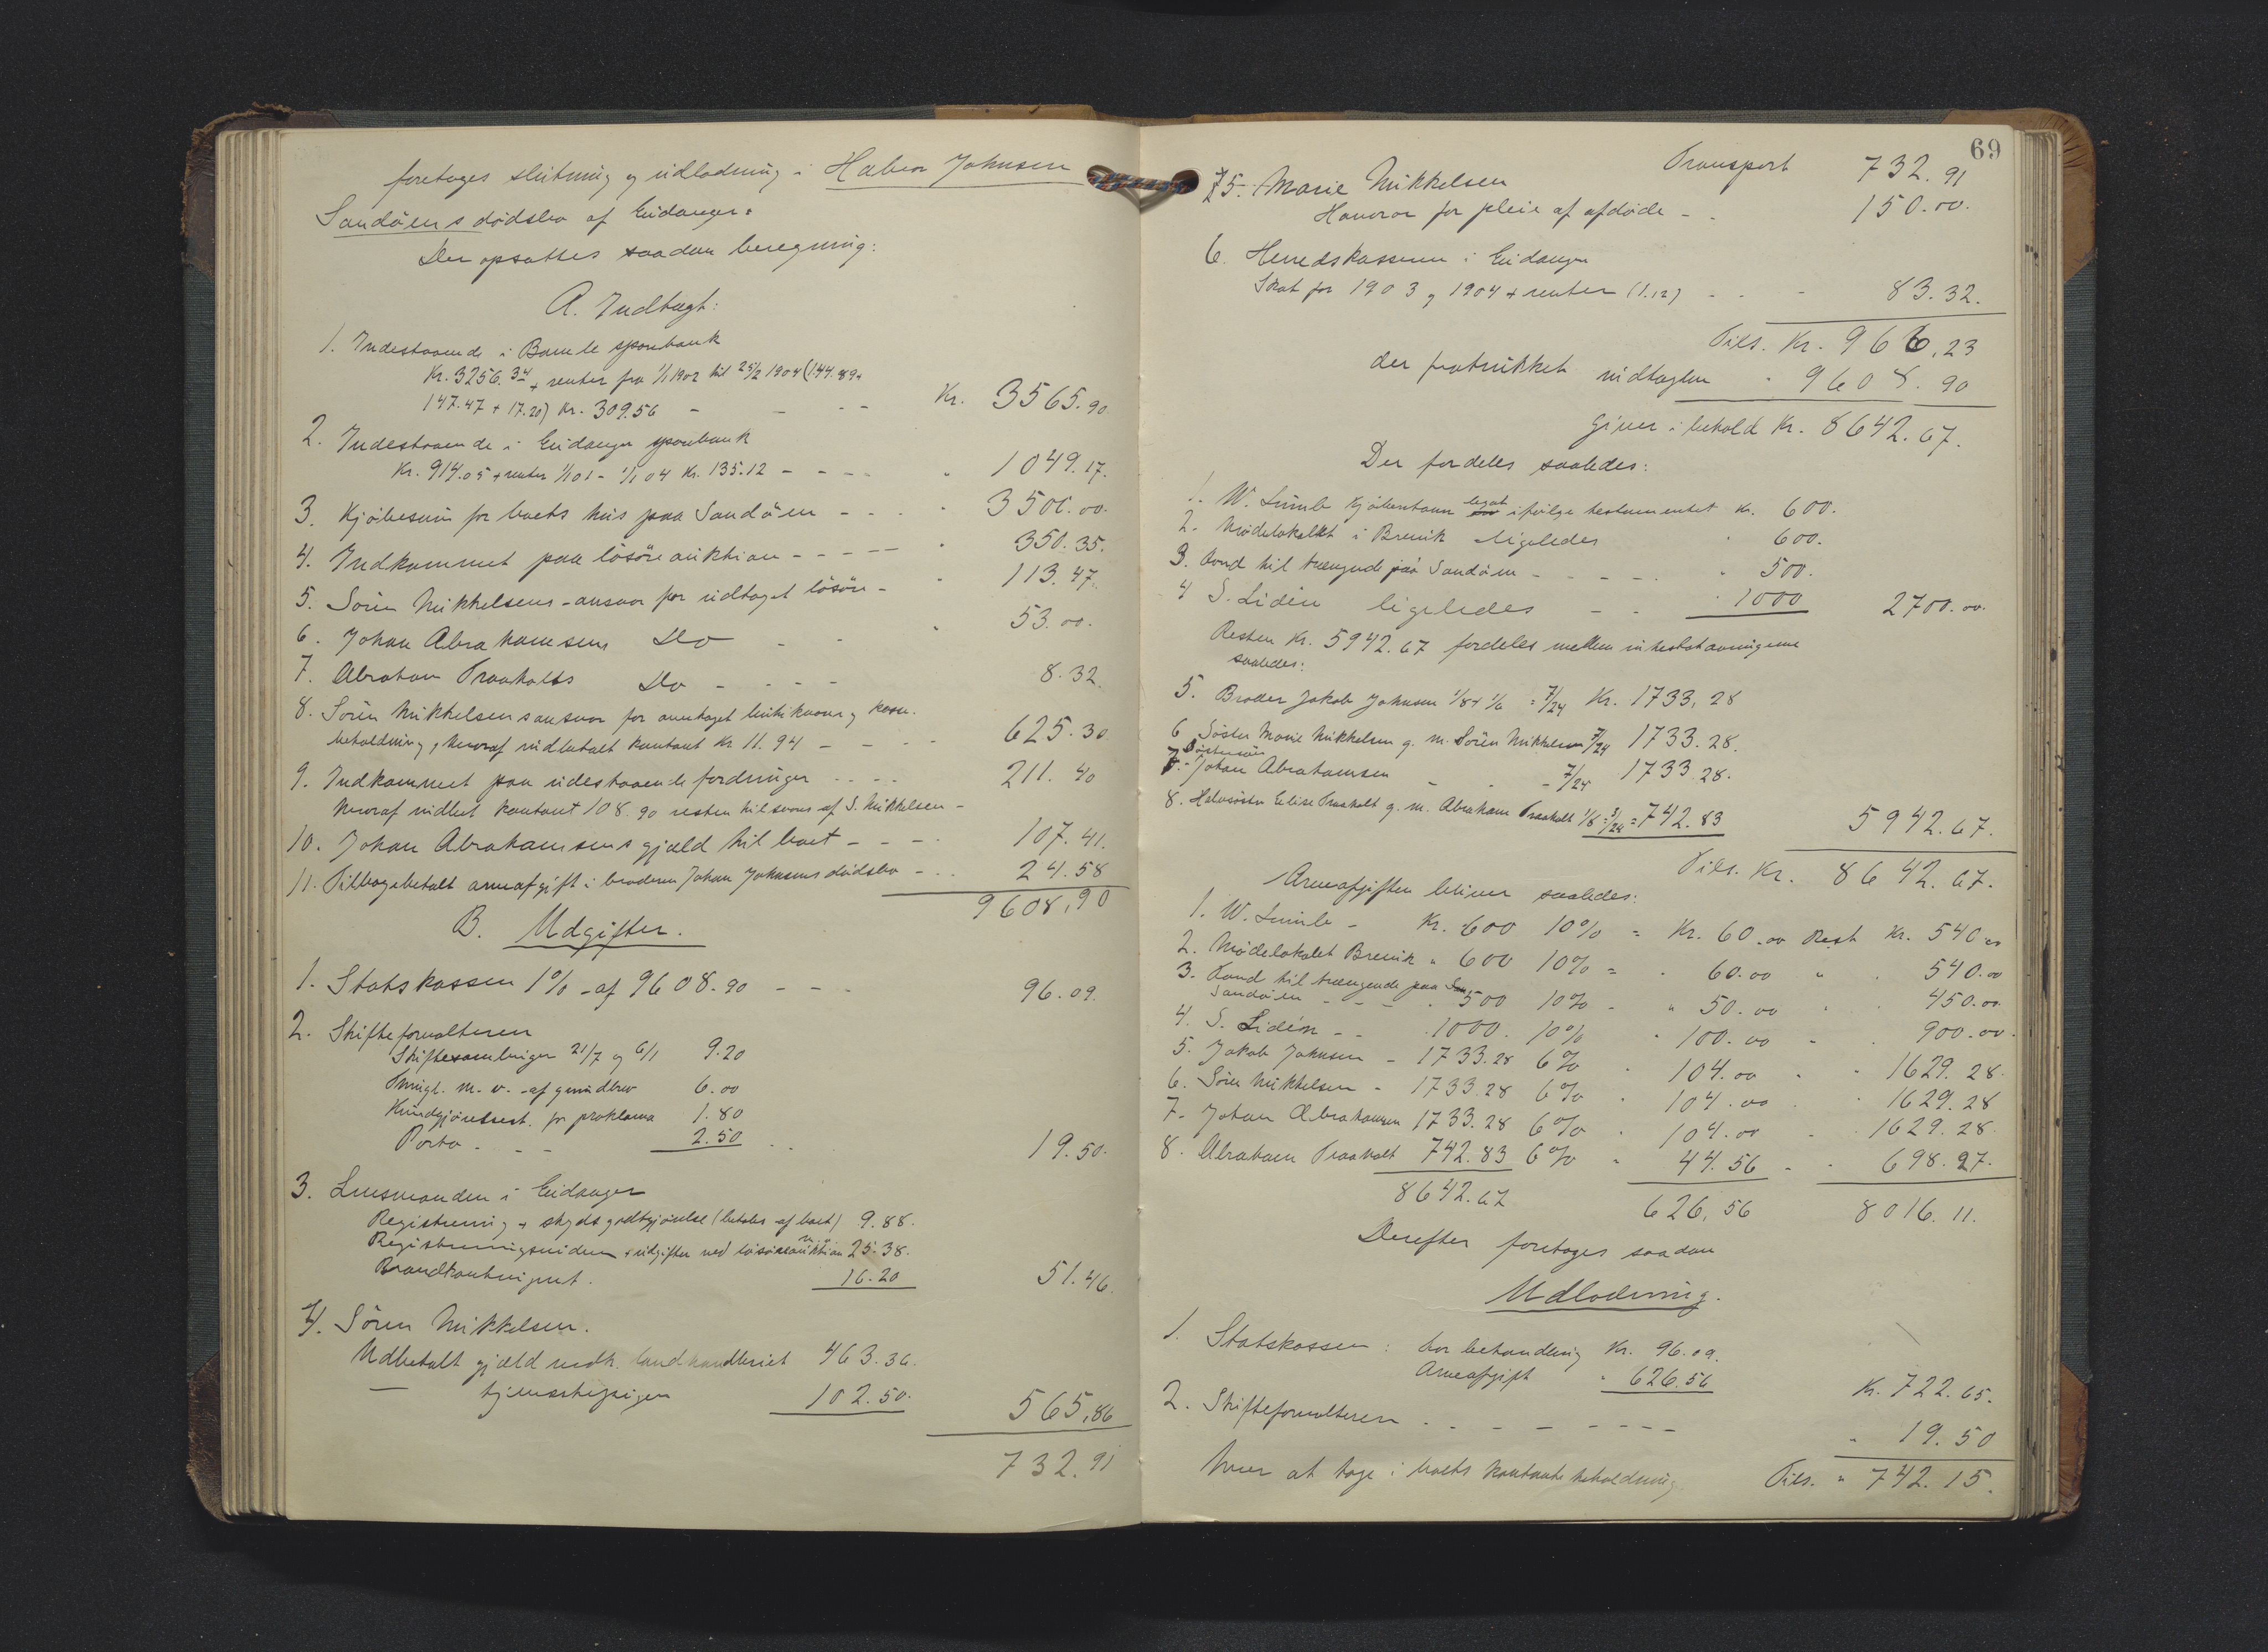 foretages slutning og udlodning i Halvor Johnsen
Sandöens dödsbo af Eidanger.
Der opsattes saadan beregning:
A. Indtægt:
1. Indestaaende i Bamle sparebank
Kr. 3256.34 + renter fra 1/1 1902 til 25/2 1904 (144.89+
147.47 + 17.20) Kr. 309.56 - - - - Kr. 3565.90
2. Indestaaende i Eidanger sparebank
Kr. 914.05 + renter 1/1 01 - 1/1 04 Kr. 135.12 - - - - " 1049.17.
3. Kjöbesum for boets hus paa Sandöen - - - " 3500.00.
4. Indkommet paa lösöreauktion - - - - - " 350.35.
5. Sören Mikkelsens ansvar for udtaget lösöre - " 113.47.
6. Johan Abrahamsens Do - - " 53.00.
7. Abraham Traaholts Do - - - - 8.32.
8. Sören Mikkelsens ansvar for overtaget butikvarer og kasse-
beholdning, hvoraf indbetalt kontant Kr 11.94 - - - - 625.30
9. Indkommet paa udestaaende fordringer - - - - 211.40
hvoraf indbet kontant 108.90 resten tilsvares af S. Mikkelsen -
10. Johan Abrahamsens gjæld til boet - - - - 107.41.
11. Tilbagebetalt arveafgift i broderen Johan Johnsens dödsbo - - . 24.58
9608,90
B. Udgifter.
1. Statskassen 1% af 9608.90 - - - 96.09.
2. Skifteforvalteren
Skiftesamlinger 21/7 og 6/1 9.20
Tinugl. m. v. af grundbrev 6.00
Kundgjörelsest. for proklama 1.80
Porto - - - 2.50 19.50.
3. Lensmanden i Eidanger
Registrering + skydsgodtgjörelse (betales af boet) 9.88.
Registreringsvidner + udgifter ved lösöreauktion m. v. 25.38.
Brandkontingent. 16.20 51.46.
4. Sören Mikkelsen.
Udbetalt gjæld vedk. landhandleriet 463.36.
— tjenestepigen 102.50. 565,86
732.91
69
Transport 732.91
5. Marie Mikkelsen
Honorar for pleie af afdöde - . 150.00.
6. Herredskassen i Eidanger
Skat for 1903 og 1904 + renter (1.12) - - - 83.32.
Tils. Kr. 966,23
der fratrukket indtægten " 9608.90
giver i behold Kr. 8642.67.
Der fordeles saaledes:
1. W. Kjöbenhavn legat ifölge testamentet Kr. 600.
2. Mödelokalet i Brevik ligeledes " 600.
3. Fond til trængende paa Sandöen - - - - - " 500.
4 S. Lidén ligeledes - - " 1000 2700.00.
Resten Kr. 5942.67 fordeles mellem intestatarvingerne
saaledes:
5. Broder Jakob Johnsen 1/8 + 1/6 = 7/24 Kr. 1733,28
6 Söster Marie Mikkelsen g. m. Sören Mikkelsen 7/24 1733.28.
7. Söstersön Johan Abrahamsen - - 7/24 1733.28.
8. Halvsöster Elise Traaholt g. m. Abraham Traaholt 1/8 = 3/24 = 742.83 5942.67.
Tils. Kr. 8642.67.
Arveafgiften bliver saaledes:
1. W. - Kr. 600 10% = Kr. 60.00 Rest Kr. 540.00
2. Mödelokalet Brevik " 600 10% = " 60.00 " " 540.00
3. Fond til trængende paa
Sandöen - - - " 500 10% - " 50.00 " " 450.00.
4. S. Lidén - - . 1000. 10% " 100.00 " " 900.00.
5. Jakob Johnsen - 1733.28 6% " 104.00 " " 1629.28.
6. Sören Mikkelsen - 1733.28 6% " 104.00 " " 1629.28
7. Johan Abrahamsen 1733.28 6% " 104.00 - " 1629.28.
8. Abraham Traaholt 742.83 6% " 44.56 - " 698.27.
8642.67 626,56 8016.11.
Derefter foretages saadan
Udlodning.
1. Statskassen: for behandling Kr. 96.09.
Arveafgift " 626.56 Kr. 722.65.
2. Skifteforvalteren - - - - - - - - " 19.50
hver at tage i boets kontante beholdning Tils. " 742.15.